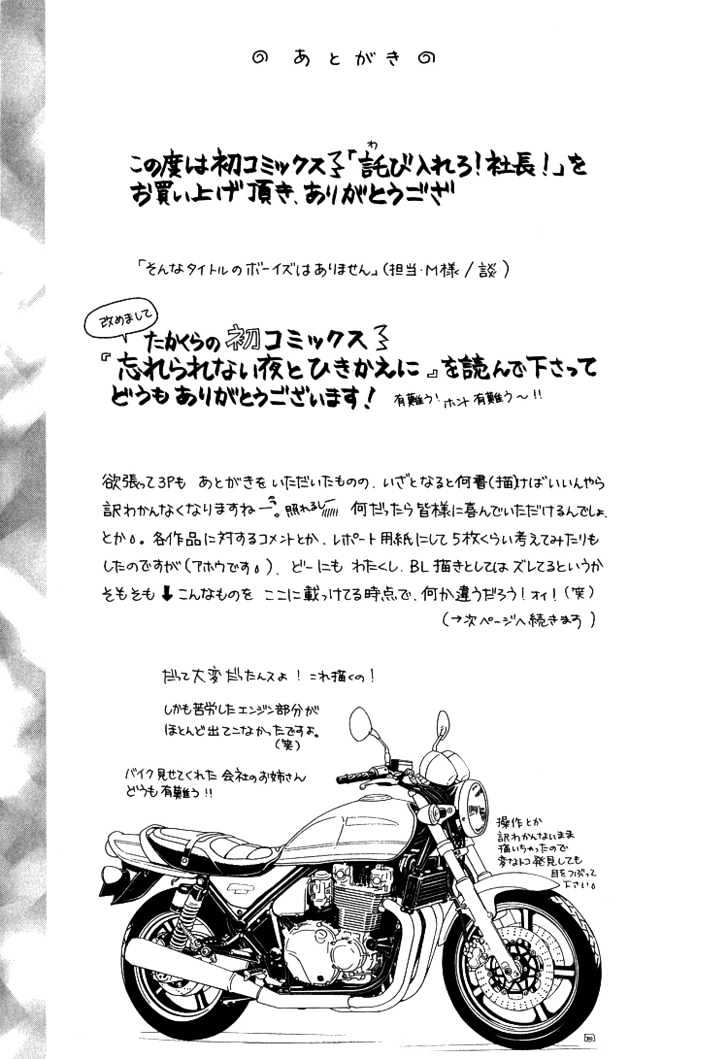 のあとがきの
この度は初コミックス「詫び入れろ!社長!」を
わ
お買い上げ頂き、ありがとうござ
「そんなタイトルのボーイズはありません」(担当・M様/談)
改めまして
たかくらの初コミックス
『忘れられない夜とひきかえに』を読んで下さって
どうもありがとうございます!
有難う!ホント有難う〜!!
欲張って3Pも あとがきをいただいたものの、いざとなると何書(描)けばいいんやら
訳わかんなくなりますねーつ。照れるしー 何だったら皆様に喜んでいただけるんでしょ、
とか。各作品に対するコメントとか、レポート用紙にして5枚くらい考えてみたりも
したのですが(アホウです。)、どーにもわたくし、BL描きとしてはズレてるというか
そもそも⬇こんなものを ここに載っけてる時点で、何か違うだろう!オイ!(笑)
(→次ページへ続きます)
だって大変だったんスよ!これ描くの!
しかも苦労したエンジン部分が
ほとんど出てこなかったですよ。
(笑)
バイク見せてくれた会社のお姉さん
どうも有難う!!
操作とか
訳わかんないまま
描いちゃったので
変なトコ発見しても
目をつぶって
下さい。